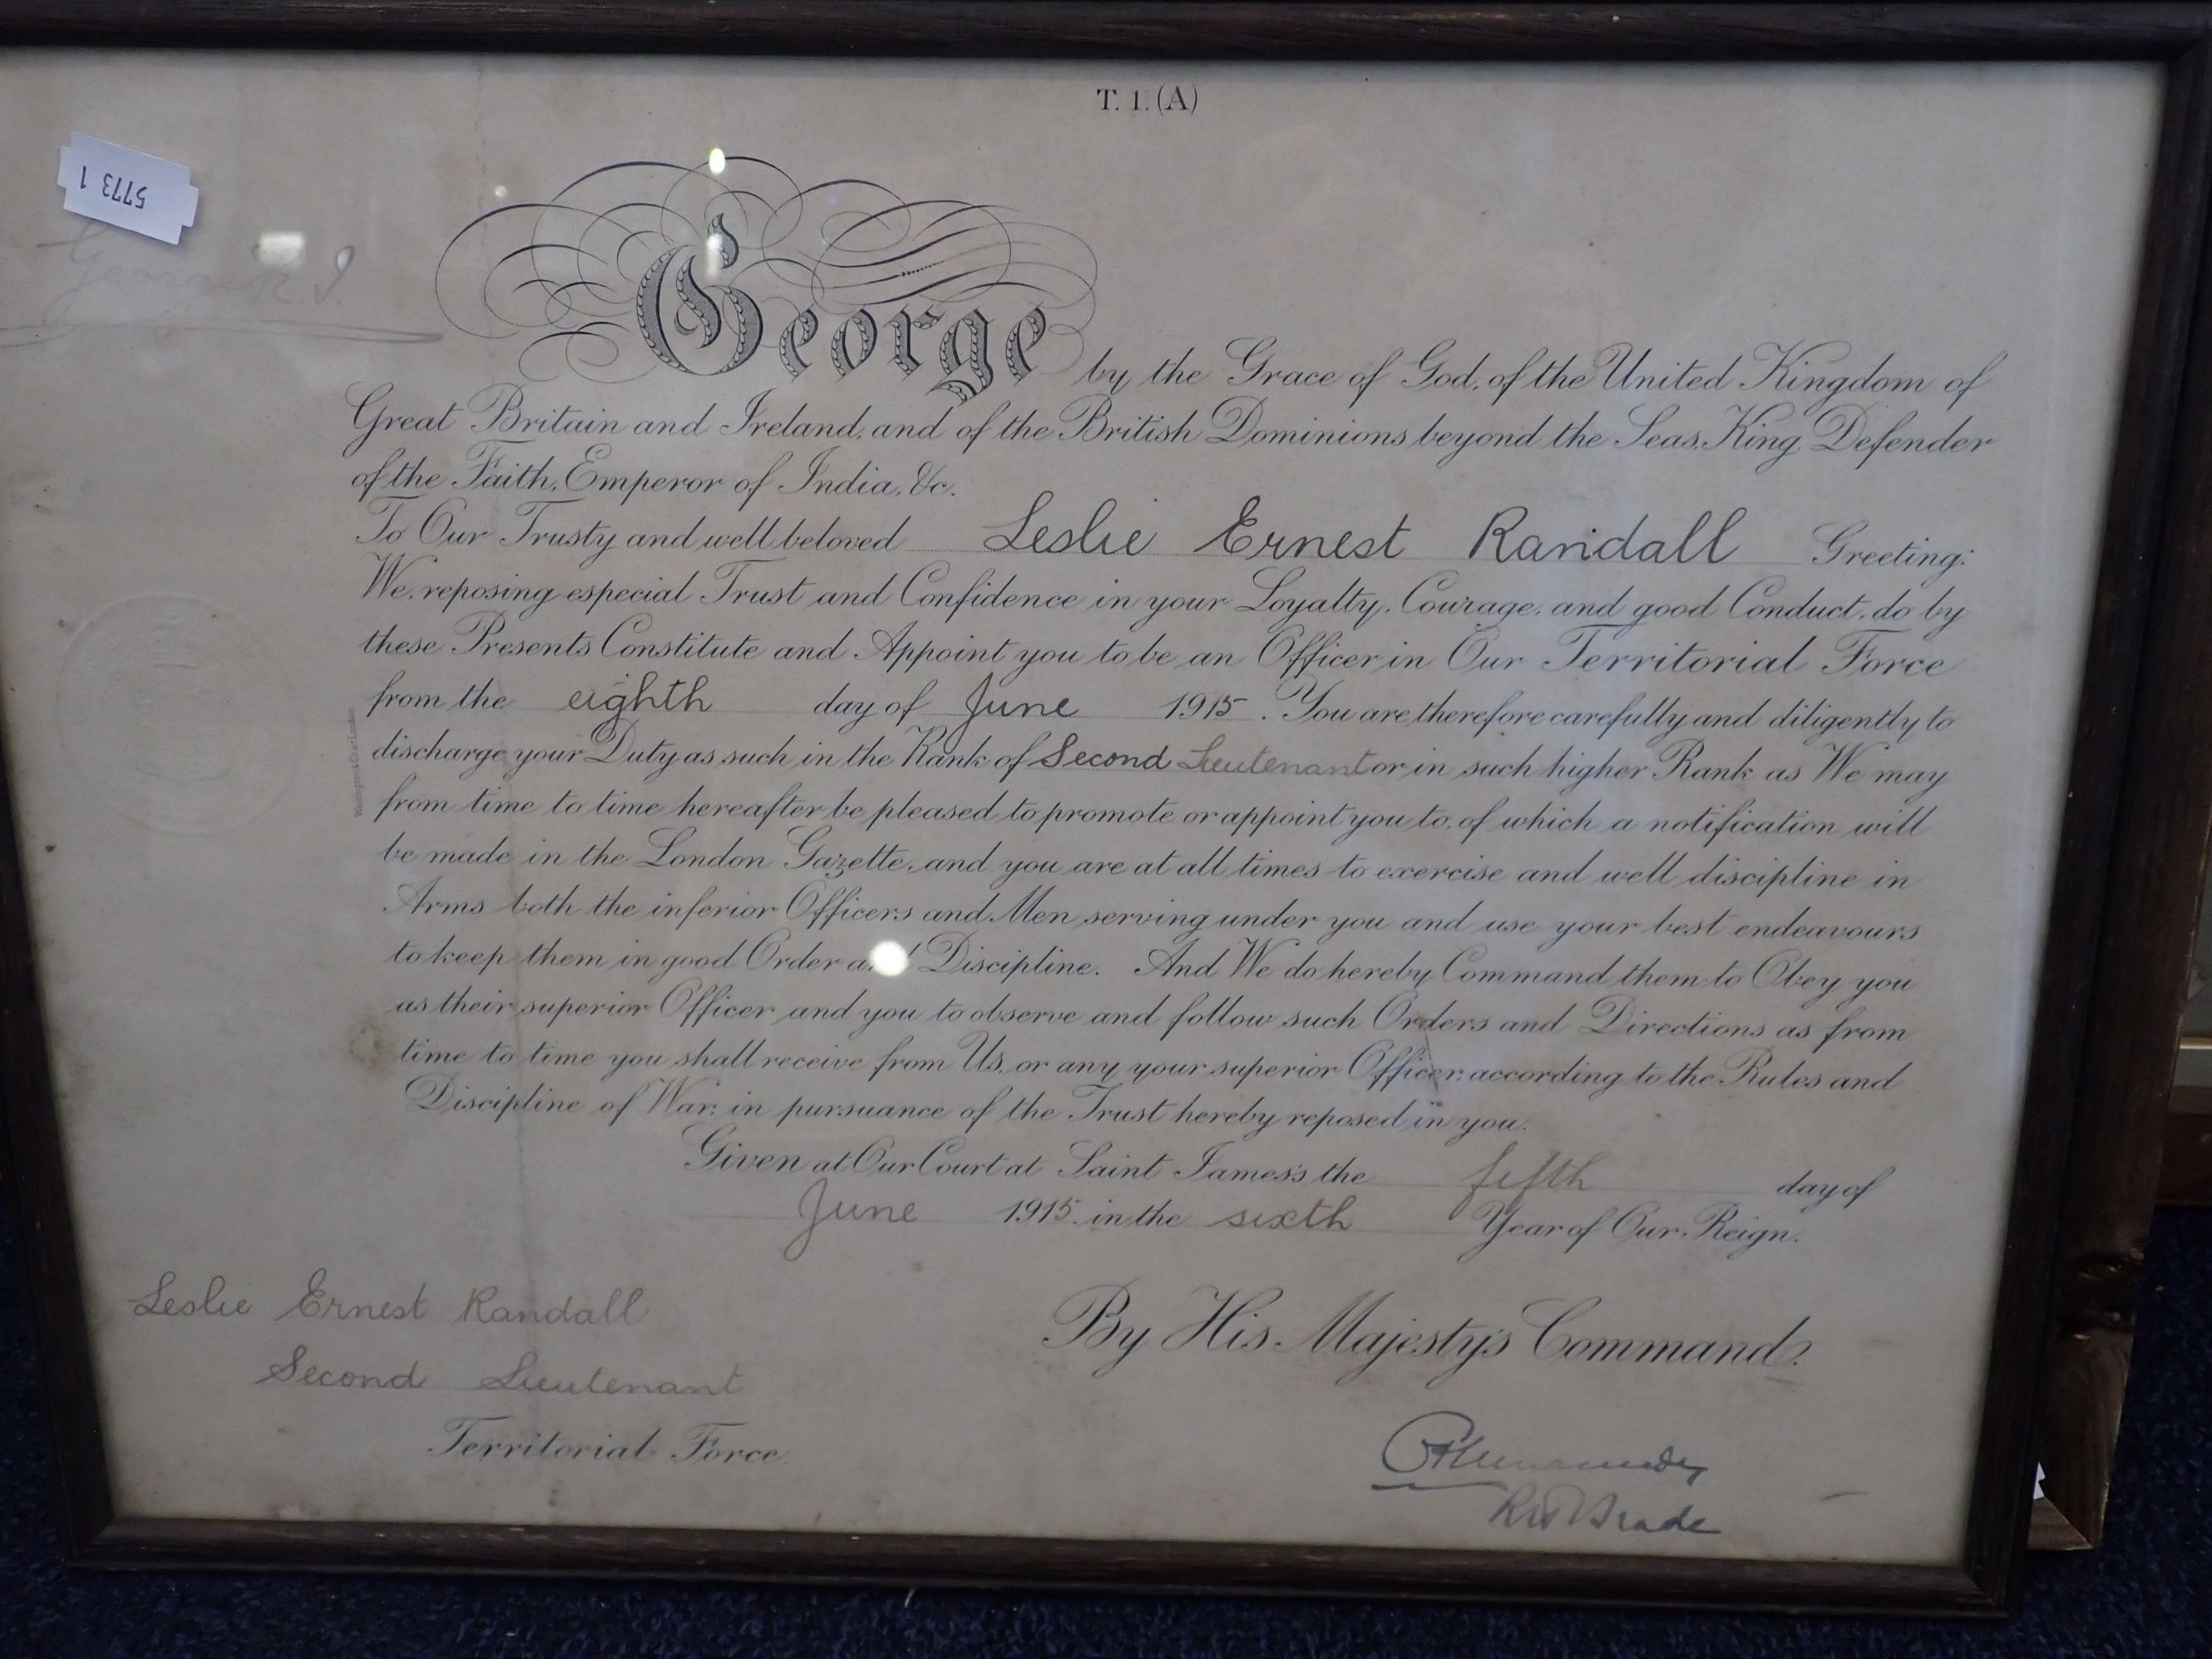 T. 1. (A)
5773 1
George R I.
George by the Grace of God, of the United Kingdom of
Great Britain and Ireland, and of the British Dominions beyond the Seas, King, Defender
of the Faith, Emperor of India, &c.
To Our Trusty and well beloved Leslie Ernest Randall Greeting:
We, reposing especial Trust and Confidence in your Loyalty, Courage, and good Conduct, do by
these Presents Constitute and Appoint you to be an Officer in Our Territorial Force
from the eighth day of June 1915. You are therefore carefully and diligently to
discharge your Duty as such in the Rank of Second Lieutenant or in such higher Rank as We may
from time to time hereafter be pleased to promote or appoint you to, of which a notification will
be made in the London Gazette, and you are at all times to exercise and well discipline in
Arms both the inferior Officers and Men serving under you and use your best endeavours
to keep them in good Order and Discipline. And We do hereby Command them to Obey you
as their superior Officer and you to observe and follow such Orders and Directions as from
time to time you shall receive from Us, or any your superior Officer, according to the Rules and
Discipline of War, in pursuance of the Trust hereby reposed in you.
Given at Our Court at Saint James's the fifth day of
June 1915 in the sixth Year of Our Reign.
Leslie Ernest Randall
Second Lieutenant
Territorial Force.
By His Majesty's Command.
RW Brade